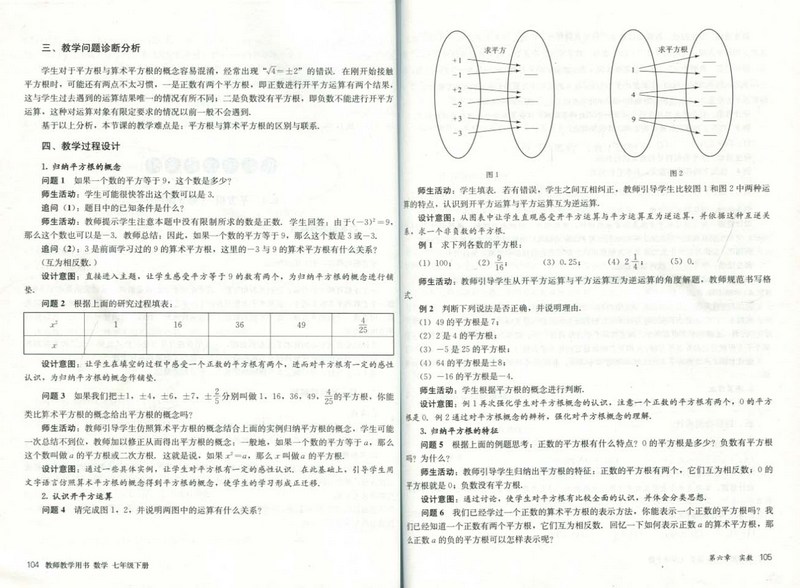 三、教学问题诊断分析
学生对于平方根与算术平方根的概念容易混淆，经常出现“√4＝±2”的错误．在刚开始接触
平方根时，可能还有两点不太习惯，一是正数有两个平方根，即正数进行开平方运算有两个结果，
这与学生过去遇到的运算结果唯一的情况有所不同；二是负数没有平方根，即负数不能进行开平方
运算，这种对运算对象有限定要求的情况以前一般不会遇到．
基于以上分析，本节课的教学难点是：平方根与算术平方根的区别与联系．
四、教学过程设计
1. 归纳平方根的概念
问题 1 如果一个数的平方等于 9，这个数是多少？
师生活动：学生可能很快答出这个数可以是 3．
追问（1）：题目中的已知条件是什么？
师生活动：教师提示学生注意本题中没有限制所求的数是正数．学生回答：由于(－3)²＝9，
那么这个数也可以是－3．教师总结：因此，如果一个数的平方等于 9，那么这个数是 3 或－3．
追问（2）：3 是前面学习过的 9 的算术平方根，这里的－3 与 9 的算术平方根有什么关系？
（互为相反数．）
设计意图：直接进入主题，让学生感受平方等于 9 的数有两个，为归纳平方根的概念进行铺
垫．
问题 2 根据上面的研究过程填表：
x² 1 16 36 49 4/25
x
设计意图：让学生在填空的过程中感受一个正数的平方根有两个，进而对平方根有一定的感性
认识，为归纳平方根的概念作铺垫．
问题 3 如果我们把±1，±4，±6，±7，±2/5分别叫做 1，16，36，49，4/25的平方根，你能
类比算术平方根的概念给出平方根的概念吗？
师生活动：教师引导学生仿照算术平方根的概念结合上面的实例归纳平方根的概念，学生可能
一次总结不到位，教师加以修正从而得出平方根的概念：一般地，如果一个数的平方等于 a，那么
这个数叫做 a 的平方根或二次方根．这就是说，如果 x²＝a，那么 x 叫做 a 的平方根．
设计意图：通过一些具体实例，让学生对平方根有一定的感性认识．在此基础上，引导学生用
文字语言仿照算术平方根的概念得到平方根的概念，使学生的学习形成正迁移．
2. 认识开平方运算
问题 4 请完成图 1、2，并说明两图中的运算有什么关系？
104 教师教学用书 数学 七年级下册
求平方
+1
－1
+2
－2
+3
－3
图 1
求平方根
1
4
9
图 2
师生活动：学生填表．若有错误，学生之间互相纠正，教师引导学生比较图 1 和图 2 中两种运
算的特点，认识到开平方运算与平方运算互为逆运算．
设计意图：从图表中让学生直观感受开平方运算与平方运算互为逆运算，并依据这种互逆关
系，求一个非负数的平方根．
例 1 求下列各数的平方根：
（1）100； （2）9/16； （3）0.25； （4）2 1/4； （5）0．
师生活动：教师引导学生从开平方运算与平方运算互为逆运算的角度解题，教师规范书写格
式．
例 2 判断下列说法是否正确，并说明理由．
（1）49 的平方根是 7；
（2）2 是 4 的平方根；
（3）－5 是 25 的平方根；
（4）64 的平方根是±8；
（5）－16 的平方根是－4．
师生活动：学生根据平方根的概念进行判断．
设计意图：例 1 再次强化学生对平方根概念的认识，注意一个正数的平方根有两个，0 的平方
根是 0．例 2 通过对平方根概念的辨析，强化对平方根概念的理解．
3. 归纳平方根的特征
问题 5 根据上面的例题思考：正数的平方根有什么特点？0 的平方根是多少？负数有平方根
吗？为什么？
师生活动：教师引导学生归纳出平方根的特征：正数的平方根有两个，它们互为相反数；0 的
平方根就是 0；负数没有平方根．
设计意图：通过讨论，使学生对平方根有比较全面的认识，并体会分类思想．
问题 6 我们已经学过一个正数的算术平方根的表示方法，你能表示一个正数的平方根吗？我
们已经知道一个正数有两个平方根，它们互为相反数．回忆一下如何表示正数 a 的算术平方根，那
么正数 a 的负的平方根可以怎样表示呢？
第六章 实数 105